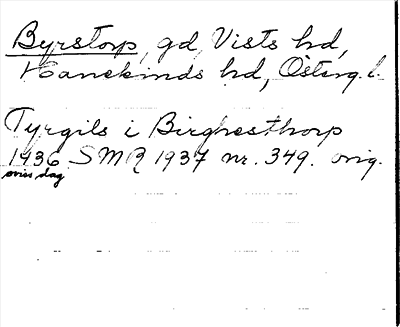 Byrstorp, gd, Vists hd,
Hanekinds hd, Österg. l.
Tyrgils i Birghesthorp
1436 SMR 1937 nr. 349. orig.
oviss dag